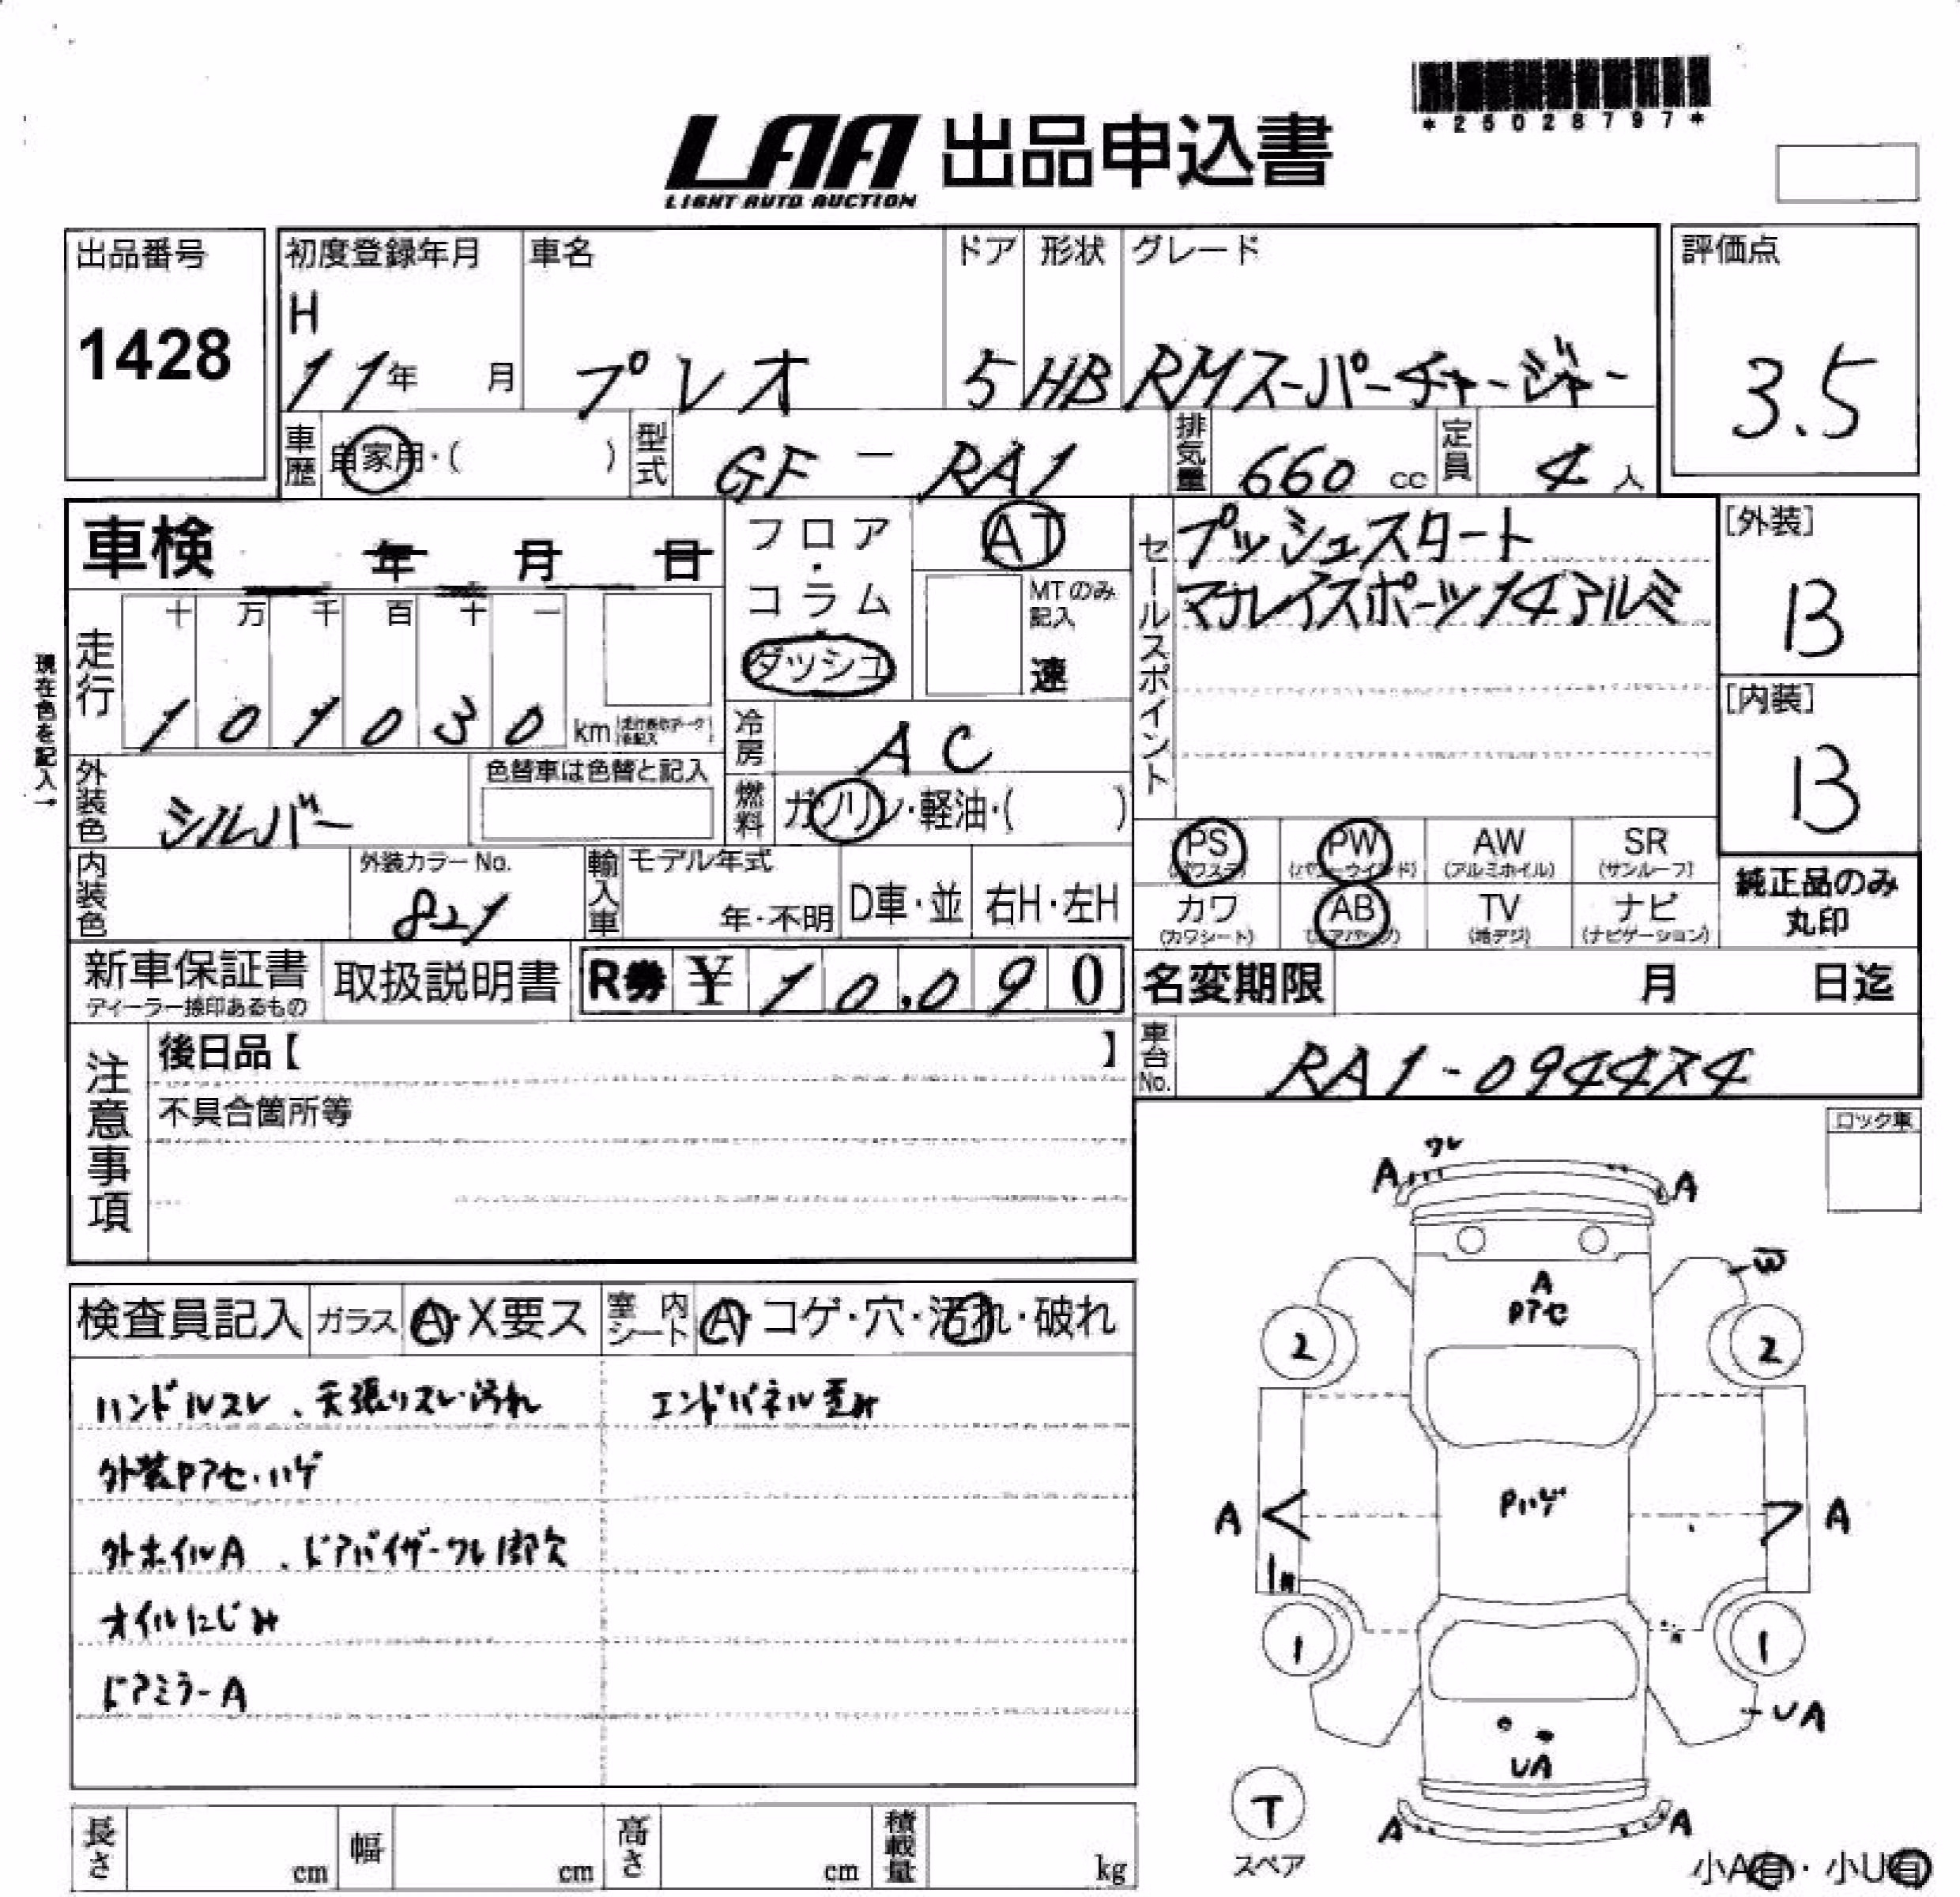 *25028797*
LAA 出品申込書
LIGHT AUTO AUCTION
出品番号 初度登録年月 車名 ドア 形状 グレード 評価点
1428 H 11年 月 プレオ 5 HB RMスーパーチャージャー 3.5
車歴 自家用・( ) 型式 GF - RA1 排気量 660 cc 定員 4 人
車検 年 月 日
フロア・コラム・ダッシュ
AT
MTのみ記入
速
セールスポイント
プッシュスタート
マナレイスポーツ14アルミ
[外装]
B
[内装]
B
現在色を記入→
走行 十 万 千 百 十 一
1 0 1 0 3 0 km
冷房 AC
外装色 シルバー 色替車は色替と記入
燃料 ガソリン・軽油・( )
内装色 外装カラーNo. 821
輸入車 モデル年式 年・不明 D車・並 右H・左H
PS (パワステ) PW (パワーウインド) AW (アルミホイル) SR (サンルーフ)
カワ (カワシート) AB (エアバッグ) TV (地デジ) ナビ (ナビゲーション)
純正品のみ
丸印
新車保証書 取扱説明書 R券 ¥ 10,090
ディーラー捺印あるもの
名変期限 月 日迄
車台No. RA1-094474
注意事項
後日品【 】
不具合箇所等
ロック車
検査員記入 ガラス A・X要ス 室内シート A・コゲ・穴・汚れ・破れ
ハンドルスレ、天張リスレ・汚れ エンドパネル歪み
外装Pアセ・ハゲ
外ホイルA、ドアバイザーワレ1部欠
オイルにじみ
ドアミラーA
ワレ
A A
A
Pアセ
2 2
Pハゲ
A A
1 1
UA
UA
A A
T
スペア
小A有・小U有
長さ cm 幅 cm 高さ cm 積載量 kg